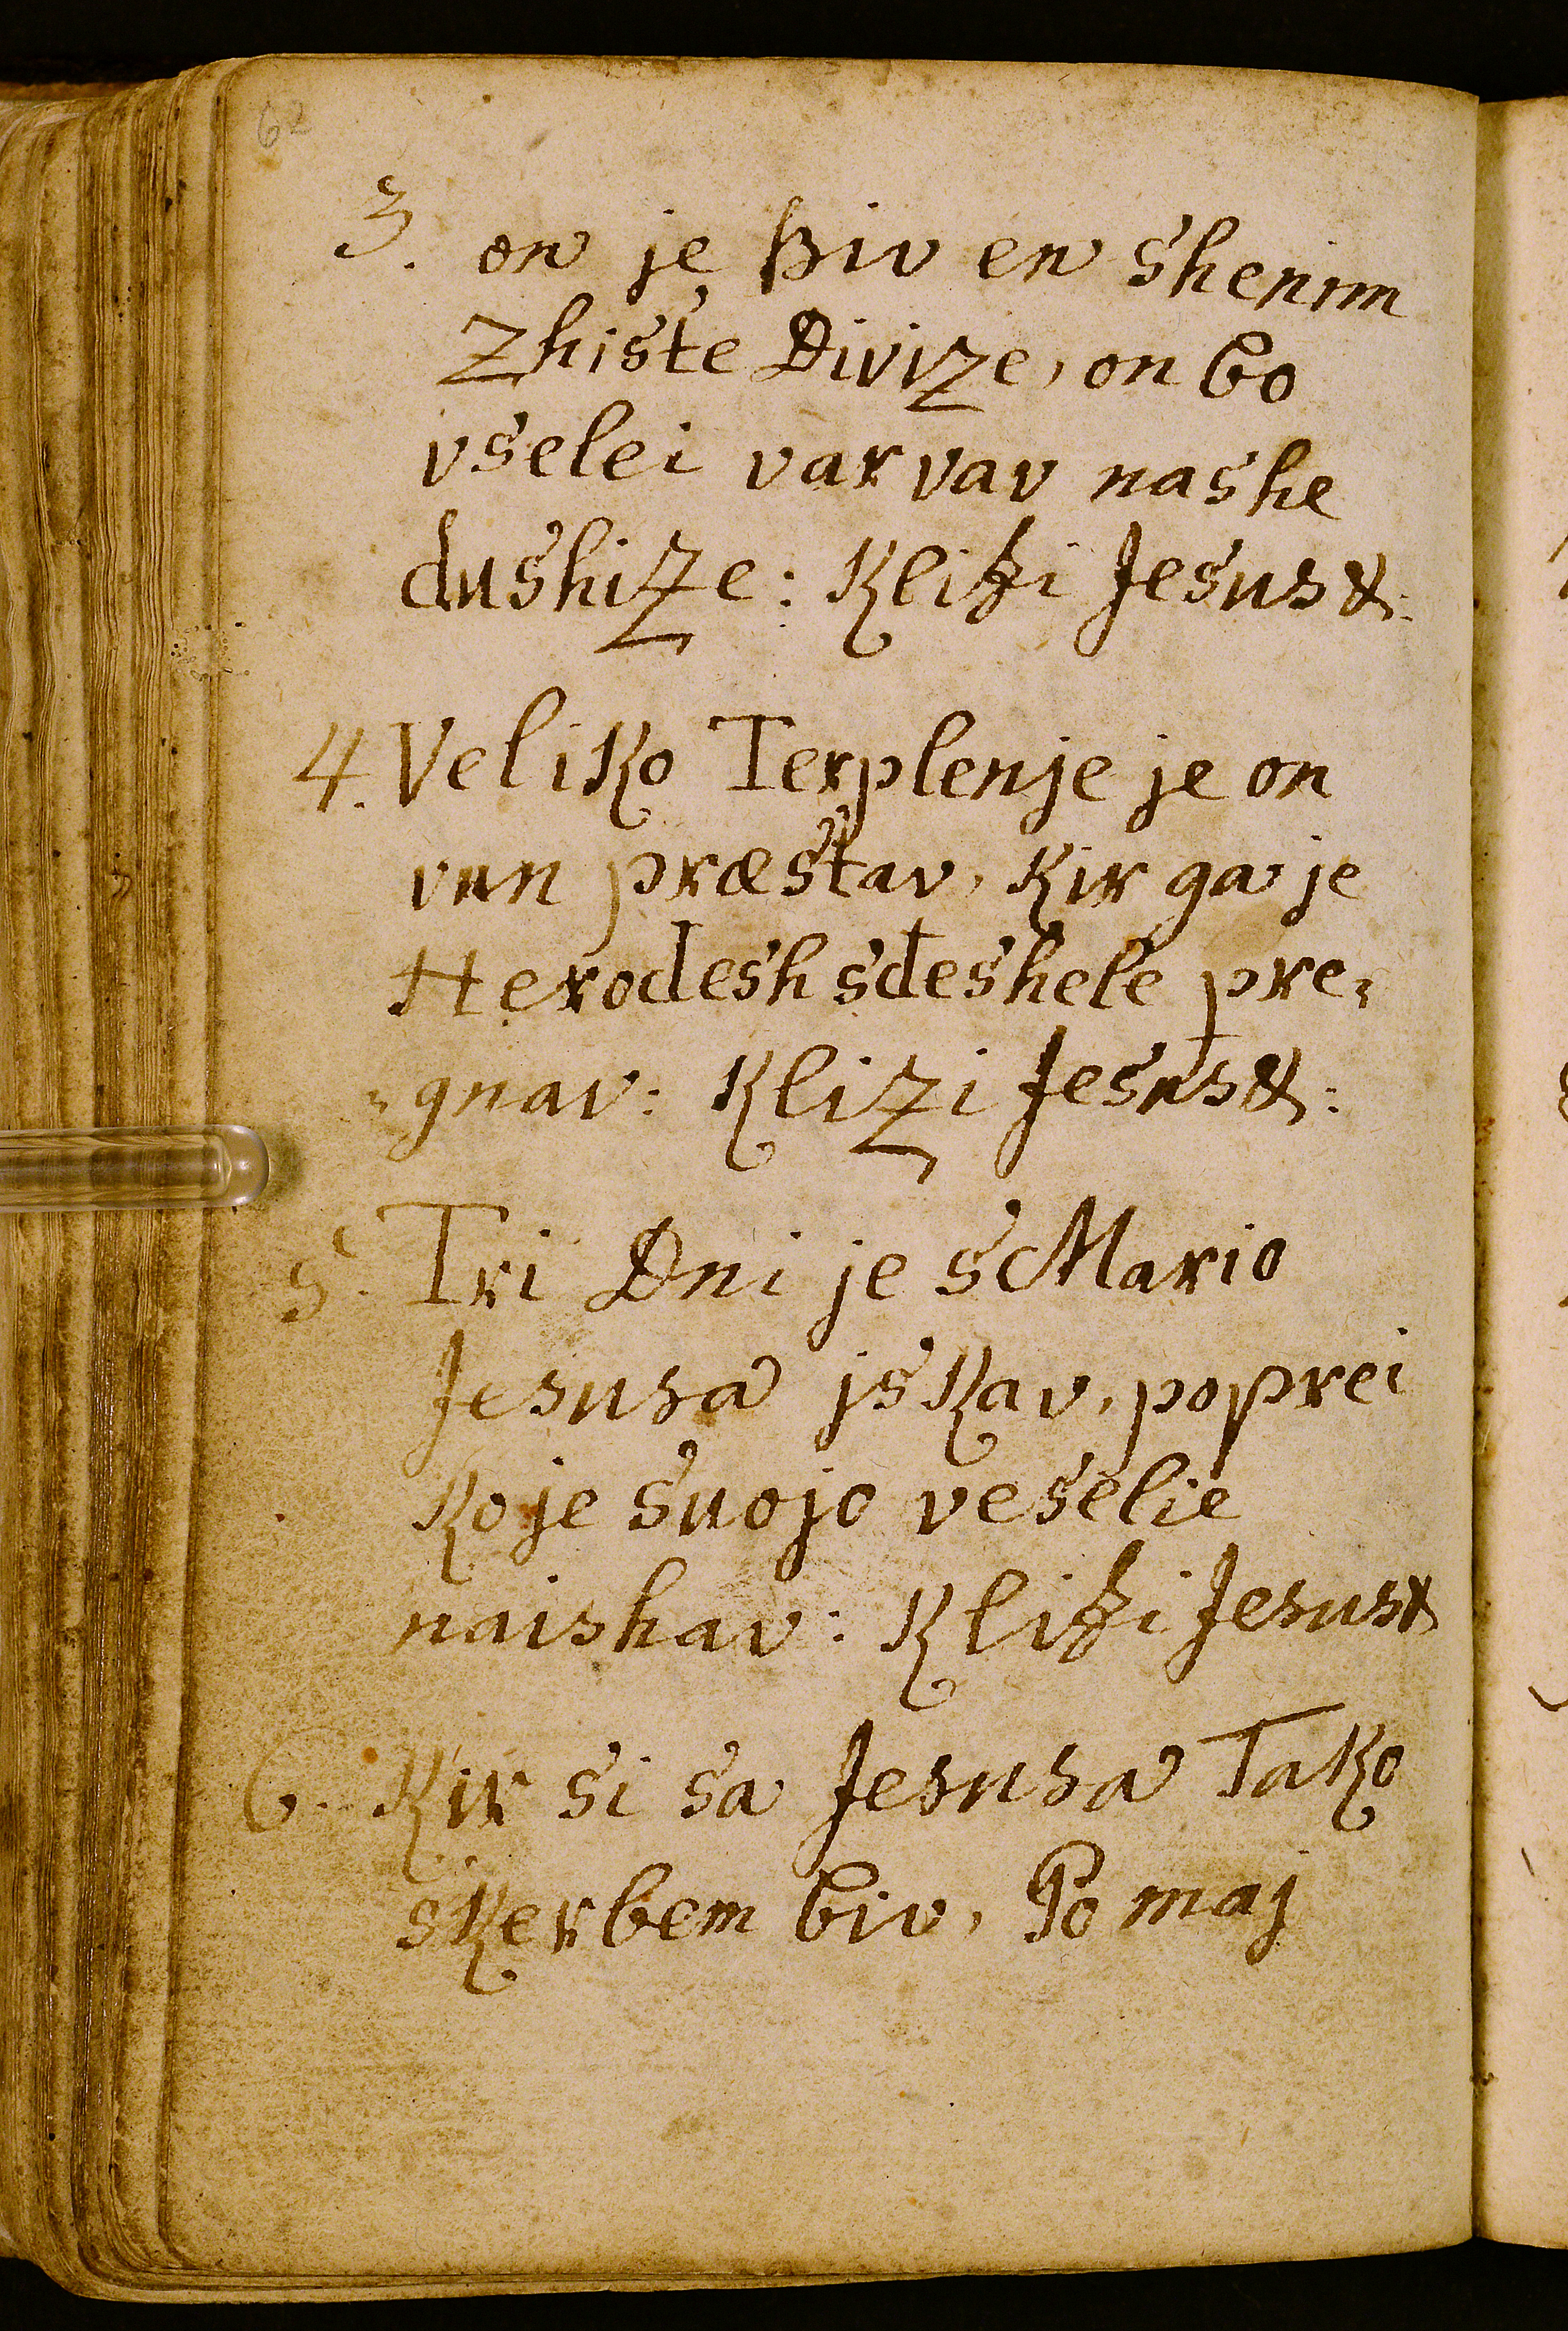 62
3. on je Biv en shenim
Zhiste Divize, on bo
vselei varvav nashe
dushizze: Klizi Jesus &:
4. Veliko Terplenje je on
vun præstav, Kir ga je
Herodesh sdeshele pre⸗
⸗gnav: Klizi Jesus &:
5. Tri Dni je s Mario
Jesusa jskav, poprei
Ko je suojo veselie
naishav: Klizi Jesus &
6. Kir si sa Jesusa Tako
skerbem biv, Po maj